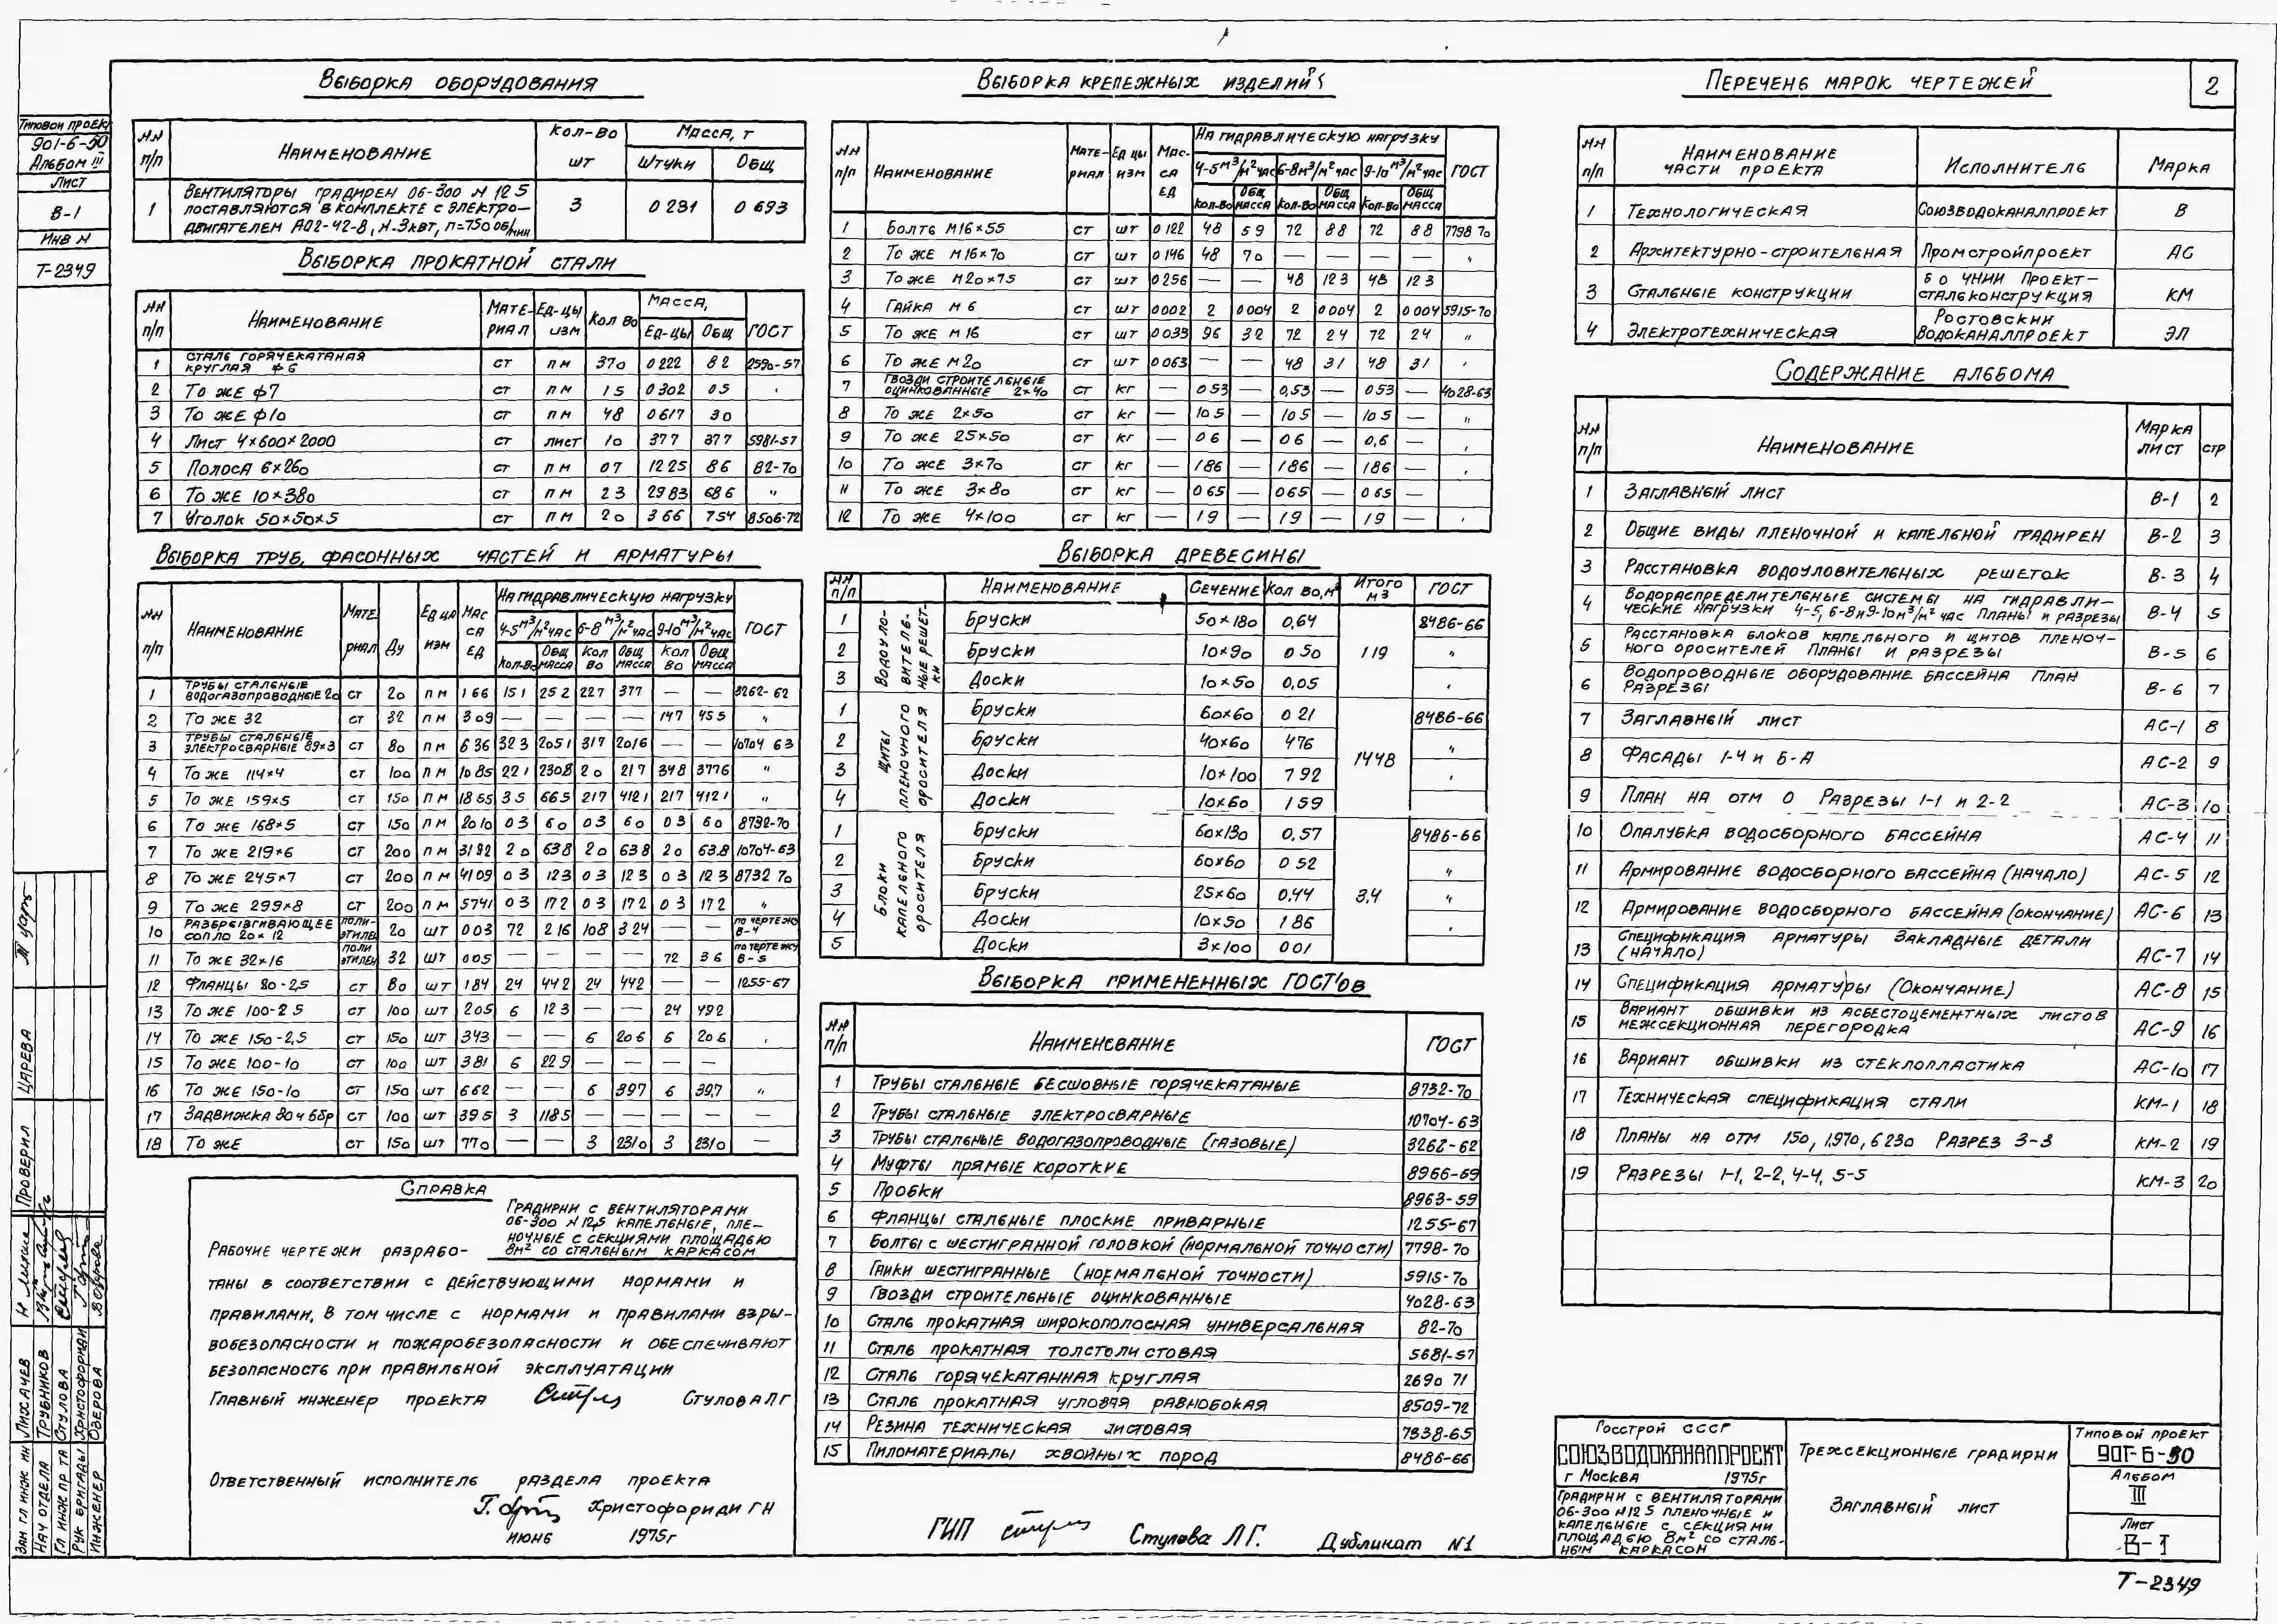 2
Типовой проект
901-6-50
Альбом III
Лист
В-1
Инв N
Т-2349
Выборка оборудования
NN п/п | Наименование | Кол-во шт | Масса, т
Штуки | Общ
1 | Вентиляторы градирен 06-300 N 12 5 поставляются в комплекте с электро-двигателем АО2-42-8, N-3квт, n=750 об/мин | 3 | 0 231 | 0 693
Выборка прокатной стали
NN п/п | Наименование | Мате-риал | Ед-цы изм | Кол во | Масса, | ГОСТ
Ед-цы | Общ
1 | Сталь горячекатаная круглая ф 6 | ст | пм | 370 | 0 222 | 8 2 | 2590-57
2 | То же ф7 | ст | пм | 15 | 0 302 | 0 5
3 | То же ф10 | ст | пм | 48 | 0 617 | 30
4 | Лист 4×600×2000 | ст | лист | 10 | 37 7 | 377 | 5981-57
5 | Полоса 6×260 | ст | пм | 0 7 | 12 25 | 8 6 | 82-70
6 | То же 10×380 | ст | пм | 2 3 | 29 83 | 68 6 | "
7 | Уголок 50×50×5 | ст | пм | 20 | 3 66 | 75 4 | 8506-72
Выборка труб, фасонных частей и арматуры
NN п/п | Наименование | Мате риал | Ду | Ед ца изм | Мас са ед | На гидравлическую нагрузку | ГОСТ
4-5 м³/м² час | 6-8 м³/м² час | 9-10 м³/м² час
Кол-во | Общ масса | Кол во | Общ масса | Кол во | Общ масса
1 | Трубы стальные водогазопроводные 20 | ст | 20 | пм | 1 66 | 15 1 | 25 2 | 22 7 | 37 7 | — | — | 3262-62
2 | То же 32 | ст | 32 | пм | 3 09 | — | — | — | — | 14 7 | 45 5 | "
3 | Трубы стальные электросварные 89×3 | ст | 80 | пм | 6 36 | 32 3 | 205 1 | 31 7 | 201 6 | — | — | 10704 63
4 | То же 114×4 | ст | 100 | пм | 10 85 | 22 1 | 230 8 | 2 0 | 21 7 | 34 8 | 377 6 | "
5 | То же 159×5 | ст | 150 | пм | 18 65 | 3 5 | 66 5 | 21 7 | 412 1 | 21 7 | 412 1 | "
6 | То же 168×5 | ст | 150 | пм | 20 10 | 0 3 | 6 0 | 0 3 | 6 0 | 0 3 | 6 0 | 8732-70
7 | То же 219×6 | ст | 200 | пм | 31 92 | 2 0 | 63 8 | 2 0 | 63 8 | 2 0 | 63.8 | 10704-63
8 | То же 245×7 | ст | 200 | пм | 41 09 | 0 3 | 12 3 | 0 3 | 12 3 | 0 3 | 12 3 | 8732 70
9 | То же 299×8 | ст | 200 | пм | 57 41 | 0 3 | 17 2 | 0 3 | 17 2 | 0 3 | 17 2 | "
10 | Разбрызгивающее сопло 20×12 | поли-этилен | 20 | шт | 0 03 | 72 | 2 16 | 108 | 3 24 | — | — | по чертежу В-4
11 | То же 32×16 | поли этилен | 32 | шт | 0 05 | — | — | — | — | 72 | 3 6 | по чертежу В-5
12 | Фланцы 80-2,5 | ст | 80 | шт | 1 84 | 24 | 44 2 | 24 | 44 2 | — | — | 1255-67
13 | То же 100-2 5 | ст | 100 | шт | 2 05 | 6 | 12 3 | — | — | 24 | 49 2
14 | То же 150-2,5 | ст | 150 | шт | 3 43 | — | — | 6 | 20 6 | 6 | 20 6
15 | То же 100-10 | ст | 100 | шт | 3 81 | 6 | 22 9 | — | — | — | —
16 | То же 150-10 | ст | 150 | шт | 6 62 | — | — | 6 | 39 7 | 6 | 39,7 | "
17 | Задвижка 30 ч 6 бр | ст | 100 | шт | 39 5 | 3 | 118 5 | — | — | — | — | —
18 | То же | ст | 150 | шт | 77 0 | — | — | 3 | 231 0 | 3 | 231 0 | —
Справка
Рабочие чертежи разрабо-
Градирни с вентиляторами
06-300 N 12,5 капельные, пле-
ночные с секциями площадью
8м² со стальным каркасом
таны в соответствии с действующими нормами и
правилами, в том числе с нормами и правилами взры-
вобезопасности и пожаробезопасности и обеспечивают
безопасность при правильной эксплуатации
Главный инженер проекта Стулова Л Г
Ответственный исполнитель раздела проекта
Христофориди Г Н
июнь 1975г
Выборка крепежных изделий
NN п/п | Наименование | Мате-риал | Ед цы изм | Мас-са ед | На гидравлическую нагрузку | ГОСТ
4-5 м³/м² час | 6-8 м³/м² час | 9-10 м³/м² час
Кол-во | Общ масса | Кол-во | Общ масса | Кол-во | Общ масса
1 | Болть М16×55 | ст | шт | 0 122 | 48 | 5 9 | 72 | 8 8 | 72 | 8 8 | 7798 70
2 | То же М16×70 | ст | шт | 0 146 | 48 | 7 0 | — | — | — | — | "
3 | То же М20×75 | ст | шт | 0 256 | — | — | 48 | 12 3 | 48 | 12 3
4 | Гайка М 6 | ст | шт | 0 002 | 2 | 0 004 | 2 | 0 004 | 2 | 0 004 | 5915-70
5 | То же М 16 | ст | шт | 0 033 | 96 | 3 2 | 72 | 2 4 | 72 | 2 4 | "
6 | То же М 20 | ст | шт | 0 063 | — | — | 48 | 3 1 | 48 | 3 1
7 | Гвозди строительные оцинкованные 2×40 | ст | кг | — | 0 53 | — | 0,53 | — | 0 53 | — | 4028-63
8 | То же 2×50 | ст | кг | — | 10 5 | — | 10 5 | — | 10 5 | — | "
9 | То же 2 5×50 | ст | кг | — | 0 6 | — | 0 6 | — | 0,6 | —
10 | То же 3×70 | ст | кг | — | 1 86 | — | 1 86 | — | 1 86 | —
11 | То же 3×80 | ст | кг | — | 0 65 | — | 0 65 | — | 0 65 | —
12 | То же 4×100 | ст | кг | — | 1 9 | — | 1 9 | — | 1 9 | —
Выборка древесины
NN п/п | Наименование | Сечение | Кол во, м³ | Итого м3 | ГОСТ
Водоуло-вительные решет-ки
1 | Бруски | 50×180 | 0,64 | 1 19 | 8486-66
2 | Бруски | 10×90 | 0 50 | "
3 | Доски | 10×50 | 0,05
Щиты пленочного оросителя
1 | Бруски | 60×60 | 0 21 | 14 48 | 8486-66
2 | Бруски | 40×60 | 4 76 | "
3 | Доски | 10×100 | 7 92
4 | Доски | 10×60 | 1 59
Блоки капельного оросителя
1 | Бруски | 60×130 | 0,57 | 3,4 | 8486-66
2 | Бруски | 60×60 | 0 52 | "
3 | Бруски | 25×60 | 0,44 | "
4 | Доски | 10×50 | 1 86
5 | Доски | 3×100 | 0 01
Выборка примененных ГОСТ'ов
NN п/п | Наименование | ГОСТ
1 | Трубы стальные бесшовные горячекатаные | 8732-70
2 | Трубы стальные электросварные | 10704-63
3 | Трубы стальные водогазопроводные (газовые) | 3262-62
4 | Муфты прямые короткие | 8966-59
5 | Пробки | 8963-59
6 | Фланцы стальные плоские приварные | 1255-67
7 | Болты с шестигранной головкой (нормальной точности) | 7798-70
8 | Гайки шестигранные (нормальной точности) | 5915-70
9 | Гвозди строительные оцинкованные | 4028-63
10 | Сталь прокатная широкополосная универсальная | 82-70
11 | Сталь прокатная толстолистовая | 5681-57
12 | Сталь горячекатанная круглая | 2690 71
13 | Сталь прокатная угловая равнобокая | 8509-72
14 | Резина техническая листовая | 7338-65
15 | Пиломатериалы хвойных пород | 8486-66
ГИП Стулова Л.Г. Дубликат N1
Перечень марок чертежей
NN п/п | Наименование части проекта | Исполнитель | Марка
1 | Технологическая | Союзводоканалпроект | В
2 | Архитектурно-строительная | Промстройпроект | АС
3 | Стальные конструкции | БО ЧНИИ Проект-стальконструкция | КМ
4 | Электротехническая | Ростовский Водоканалпроект | ЭЛ
Содержание альбома
NN п/п | Наименование | Марка лист | стр
1 | Заглавный лист | В-1 | 2
2 | Общие виды пленочной и капельной градирен | В-2 | 3
3 | Расстановка водоуловительных решеток | В-3 | 4
4 | Водораспределительные системы на гидравли-ческие нагрузки 4-5, 6-8 и 9-10 м³/м² час Планы и разрезы | В-4 | 5
5 | Расстановка блоков капельного и щитов пленоч-ного оросителей Планы и разрезы | В-5 | 6
6 | Водопроводные оборудование бассейна План Разрезы | В-6 | 7
7 | Заглавный лист | АС-1 | 8
8 | Фасады 1-4 и Б-А | АС-2 | 9
9 | План на отм 0 Разрезы 1-1 и 2-2 | АС-3 | 10
10 | Опалубка водосборного бассейна | АС-4 | 11
11 | Армирование водосборного бассейна (начало) | АС-5 | 12
12 | Армирование водосборного бассейна (окончание) | АС-6 | 13
13 | Спецификация арматуры Закладные детали (начало) | АС-7 | 14
14 | Спецификация арматуры (Окончание) | АС-8 | 15
15 | Вариант обшивки из асбестоцементных листов межсекционная перегородка | АС-9 | 16
16 | Вариант обшивки из стеклопластика | АС-10 | 17
17 | Техническая спецификация стали | КМ-1 | 18
18 | Планы на отм 150, 1.970, 6 230 Разрез 3-3 | КМ-2 | 19
19 | Разрезы 1-1, 2-2, 4-4, 5-5 | КМ-3 | 20
Госстрой СССР
СОЮЗВОДОКАНАЛПРОЕКТ
г Москва 1975г
Градирни с вентиляторами
06-300 N 12 5 пленочные и
капельные с секциями
площадью 8м² со сталь-
ным каркасом
Трехсекционные градирни
Заглавный лист
Типовой проект
901-6-50
Альбом
III
Лист
В-1
Т-2349
Проверил Царева
Зам гл инж ин Лихачев
Нач отдела Трубников
Гл инж пр та Стулова
Рук бригады Христофориди
Инженер Озерова